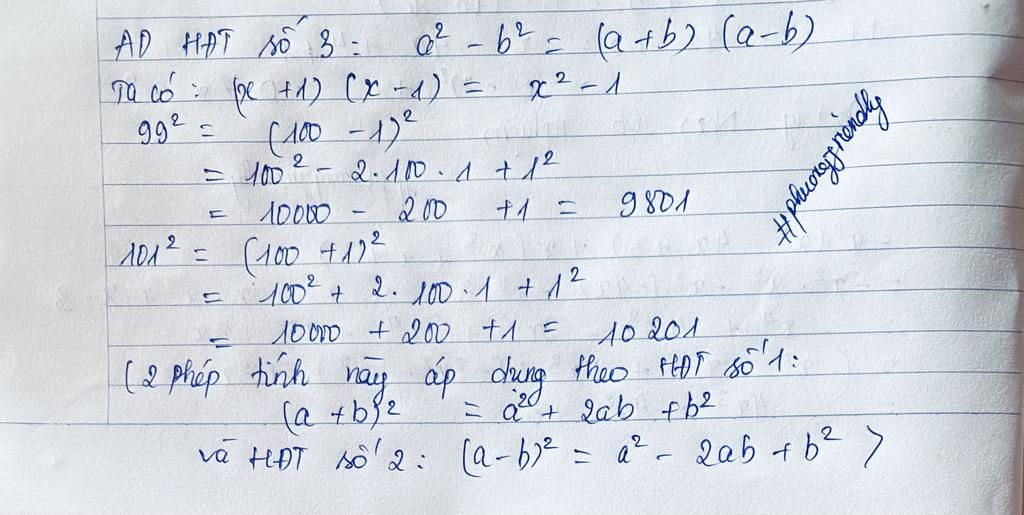 AD HĐT số 3 : a² - b² = (a+b) (a-b)
Ta có : (x +1) (x -1) = x² - 1
99² = (100 -1)²
= 100² - 2.100.1 +1²
= 10000 - 200 +1 = 9801
#phuongfriendly
101² = (100 +1)²
= 100² + 2.100.1 + 1²
= 10000 + 200 +1 = 10201
(2 phép tính này áp dụng theo HĐT số 1:
(a +b)² = a² + 2ab +b²
và HĐT số 2 : (a-b)² = a² - 2ab + b² )